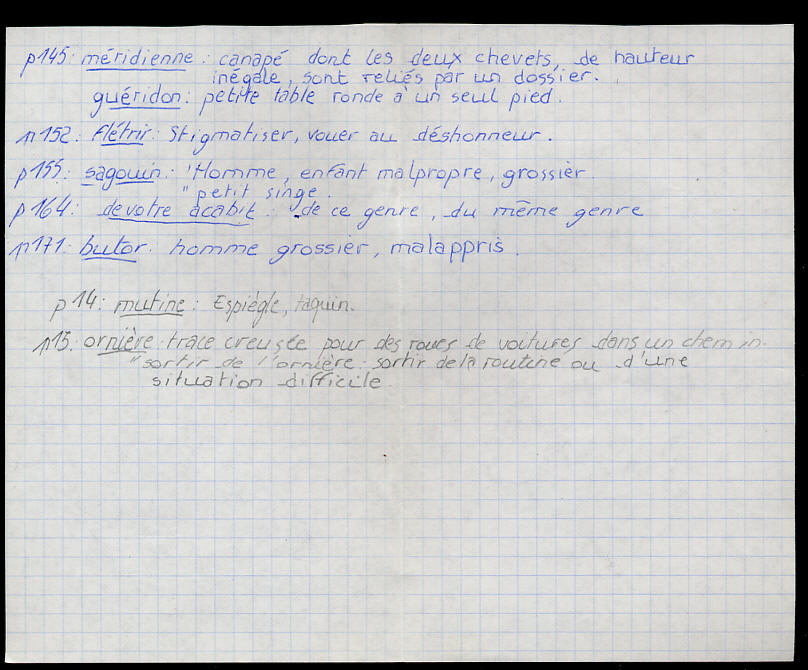 p145: méridienne : canapé dont les deux chevets, de hauteur
inégale, sont reliés par un dossier.
guéridon : petite table ronde à un seul pied.
p152 : flétrir : Stigmatiser, vouer au déshonneur.
p155 : sagouin : 'Homme, enfant malpropre, grossier.
" petit singe.
p164 : de votre acabit : de ce genre, du même genre
p171 : butor : homme grossier, malappris.
p14 : mutine : Espiègle, taquin.
p15 : ornière : trace creusée pour des roues de voitures dans un chemin.
"sortir de l'ornière : sortir de la routine ou d'une
situation difficile.